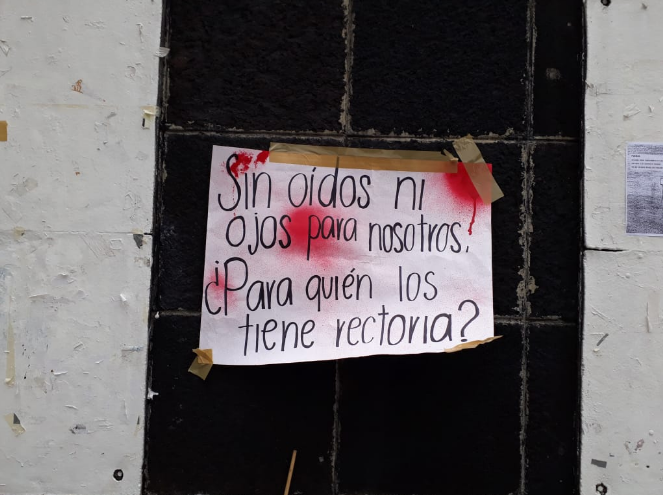 Sin oídos ni
ojos para nosotros.
¿Para quién los
tiene rectoría?